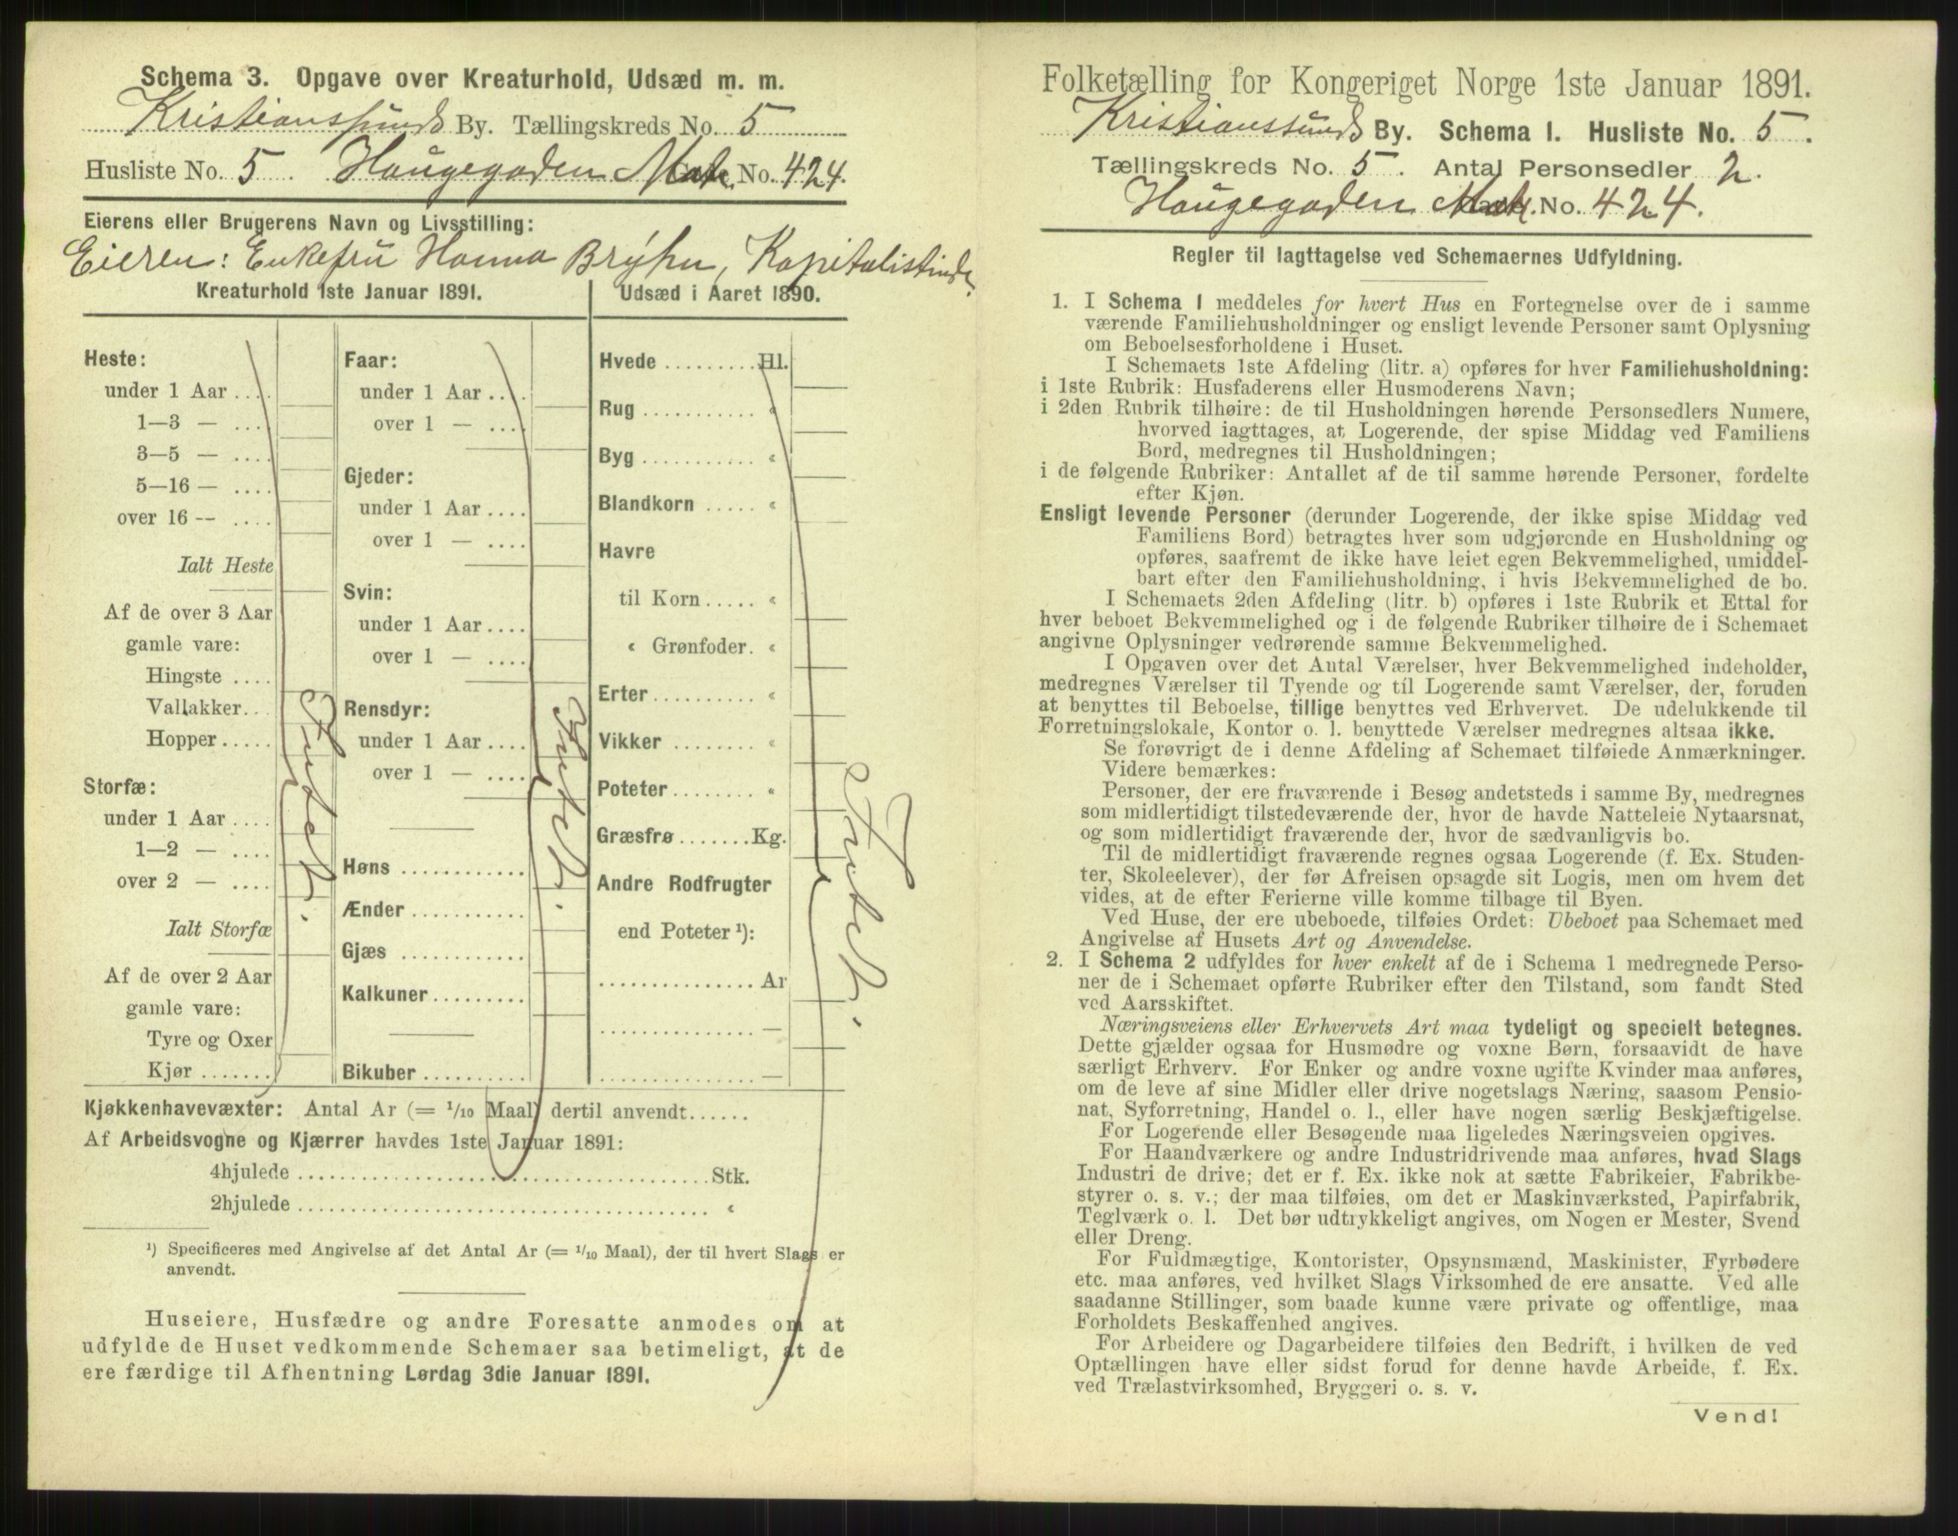 Schema 3. Opgave over Kreaturhold, Udsæd m. m.
Kristianssunds By. Tællingskreds No. 5
Husliste No. 5. Haugegaden Matr. No. 424.
Eierens eller Brugerens Navn og Livsstilling:
Eieren: Enkefru Hanna Brÿhn, Kapitalistinde.
Kreaturhold 1ste Januar 1891.
Heste:
under 1 Aar ....
1—3 — ....
3—5 — ....
5—16 — ....
over 16 — ....
Ialt Heste
Af de over 3 Aar
gamle vare:
Hingste ....
Vallakker...
Hopper.....
Storfæ:
under 1 Aar ....
1—2 — ....
over 2 — ....
Ialt Storfæ
Af de over 2 Aar
gamle vare:
Tyre og Oxer
Kjør .......
Intet.
Faar:
under 1 Aar ....
over 1 — ....
Gjeder:
under 1 Aar ....
over 1 — ....
Svin:
under 1 Aar ....
over 1 — ....
Rensdyr:
under 1 Aar ....
over 1 — ....
Høns ............
Ænder ...........
Gjæs ............
Kalkuner .........
Bikuber ..........
Intet.
Udsæd i Aaret 1890.
Hvede ......... Hl.
Rug ........... «
Byg ........... «
Blandkorn ..... «
Havre
til Korn ..... «
« Grønfoder. «
Erter ......... «
Vikker ........ «
Poteter ........ «
Græsfrø ....... Kg.
Andre Rodfrugter
end Poteter ¹):
............... Ar
............... —
............... —
Intet.
Kjøkkenhavevæxter: Antal Ar (= 1/10 Maal) dertil anvendt......
Af Arbeidsvogne og Kjærrer havdes 1ste Januar 1891:
4hjulede ........................................ Stk.
2hjulede ........................................ «
¹) Specificeres med Angivelse af det Antal Ar (= 1/10 Maal), der til hvert Slags er
anvendt.
Huseiere, Husfædre og andre Foresatte anmodes om at
udfylde de Huset vedkommende Schemaer saa betimeligt, at de
ere færdige til Afhentning Lørdag 3die Januar 1891.
Folketælling for Kongeriget Norge 1ste Januar 1891.
Kristianssunds By. Schema 1. Husliste No. 5.
Tællingskreds No. 5. Antal Personsedler 2.
Haugegaden Matr. No. 424.
Regler til Iagttagelse ved Schemaernes Udfyldning.
1. I Schema 1 meddeles for hvert Hus en Fortegnelse over de i samme
værende Familiehusholdninger og ensligt levende Personer samt Oplysning
om Beboelsesforholdene i Huset.
I Schemaets 1ste Afdeling (litr. a) opføres for hver Familiehusholdning:
i 1ste Rubrik: Husfaderens eller Husmoderens Navn;
i 2den Rubrik tilhøire: de til Husholdningen hørende Personsedlers Numere,
hvorved iagttages, at Logerende, der spise Middag ved Familiens
Bord, medregnes til Husholdningen;
i de følgende Rubriker: Antallet af de til samme hørende Personer, fordelte
efter Kjøn.
Ensligt levende Personer (derunder Logerende, der ikke spise Middag ved
Familiens Bord) betragtes hver som udgjørende en Husholdning og
opføres, saafremt de ikke have leiet egen Bekvemmelighed, umiddel-
bart efter den Familiehusholdning, i hvis Bekvemmelighed de bo.
I Schemaets 2den Afdeling (litr. b) opføres i 1ste Rubrik et Ettal for
hver beboet Bekvemmelighed og i de følgende Rubriker tilhøire de i Schemaet
angivne Oplysninger vedrørende samme Bekvemmelighed.
I Opgaven over det Antal Værelser, hver Bekvemmelighed indeholder,
medregnes Værelser til Tyende og til Logerende samt Værelser, der, foruden
at benyttes til Beboelse, tillige benyttes ved Erhvervet. De udelukkende til
Forretningslokale, Kontor o. l. benyttede Værelser medregnes altsaa ikke.
Se forøvrigt de i denne Afdeling af Schemaet tilføiede Anmærkninger.
Videre bemærkes:
Personer, der ere fraværende i Besøg andetsteds i samme By, medregnes
som midlertidigt tilstedeværende der, hvor de havde Natteleie Nytaarsnat,
og som midlertidigt fraværende der, hvor de sædvanligvis bo.
Til de midlertidigt fraværende regnes ogsaa Logerende (f. Ex. Studen-
ter, Skoleelever), der før Afreisen opsagde sit Logis, men om hvem det
vides, at de efter Ferierne ville komme tilbage til Byen.
Ved Huse, der ere ubeboede, tilføies Ordet: Ubeboet paa Schemaet med
Angivelse af Husets Art og Anvendelse.
2. I Schema 2 udfyldes for hver enkelt af de i Schema 1 medregnede Perso-
ner de i Schemaet opførte Rubriker efter den Tilstand, som fandt Sted
ved Aarsskiftet.
Næringsveiens eller Erhvervets Art maa tydeligt og specielt betegnes.
Dette gjælder ogsaa for Husmødre og voxne Børn, forsaavidt de have
særligt Erhverv. For Enker og andre voxne ugifte Kvinder maa anføres,
om de leve af sine Midler eller drive nogetslags Næring, saasom Pensio-
nat, Syforretning, Handel o. l., eller have nogen særlig Beskjæftigelse.
For Logerende eller Besøgende maa ligeledes Næringsveien opgives.
For Haandværkere og andre Industridrivende maa anføres, hvad Slags
Industri de drive; det er f. Ex. ikke nok at sætte Fabrikeier, Fabrikbe-
styrer o. s. v.; der maa tilføies, om det er Maskinværksted, Papirfabrik,
Teglværk o. l. Det bør udtrykkeligt angives, om Nogen er Mester, Svend
eller Dreng.
For Fuldmægtige, Kontorister, Opsynsmænd, Maskinister, Fyrbødere
etc. maa anføres, ved hvilket Slags Virksomhed de ere ansatte. Ved alle
saadanne Stillinger, som baade kunne være private og offentlige, maa
Forholdets Beskaffenhed angives.
For Arbeidere og Dagarbeidere tilføies den Bedrift, i hvilken de ved
Optællingen have eller sidst forud for denne havde Arbeide, f. Ex.
ved Trælastvirksomhed, Bryggeri o. s. v.
Vend!